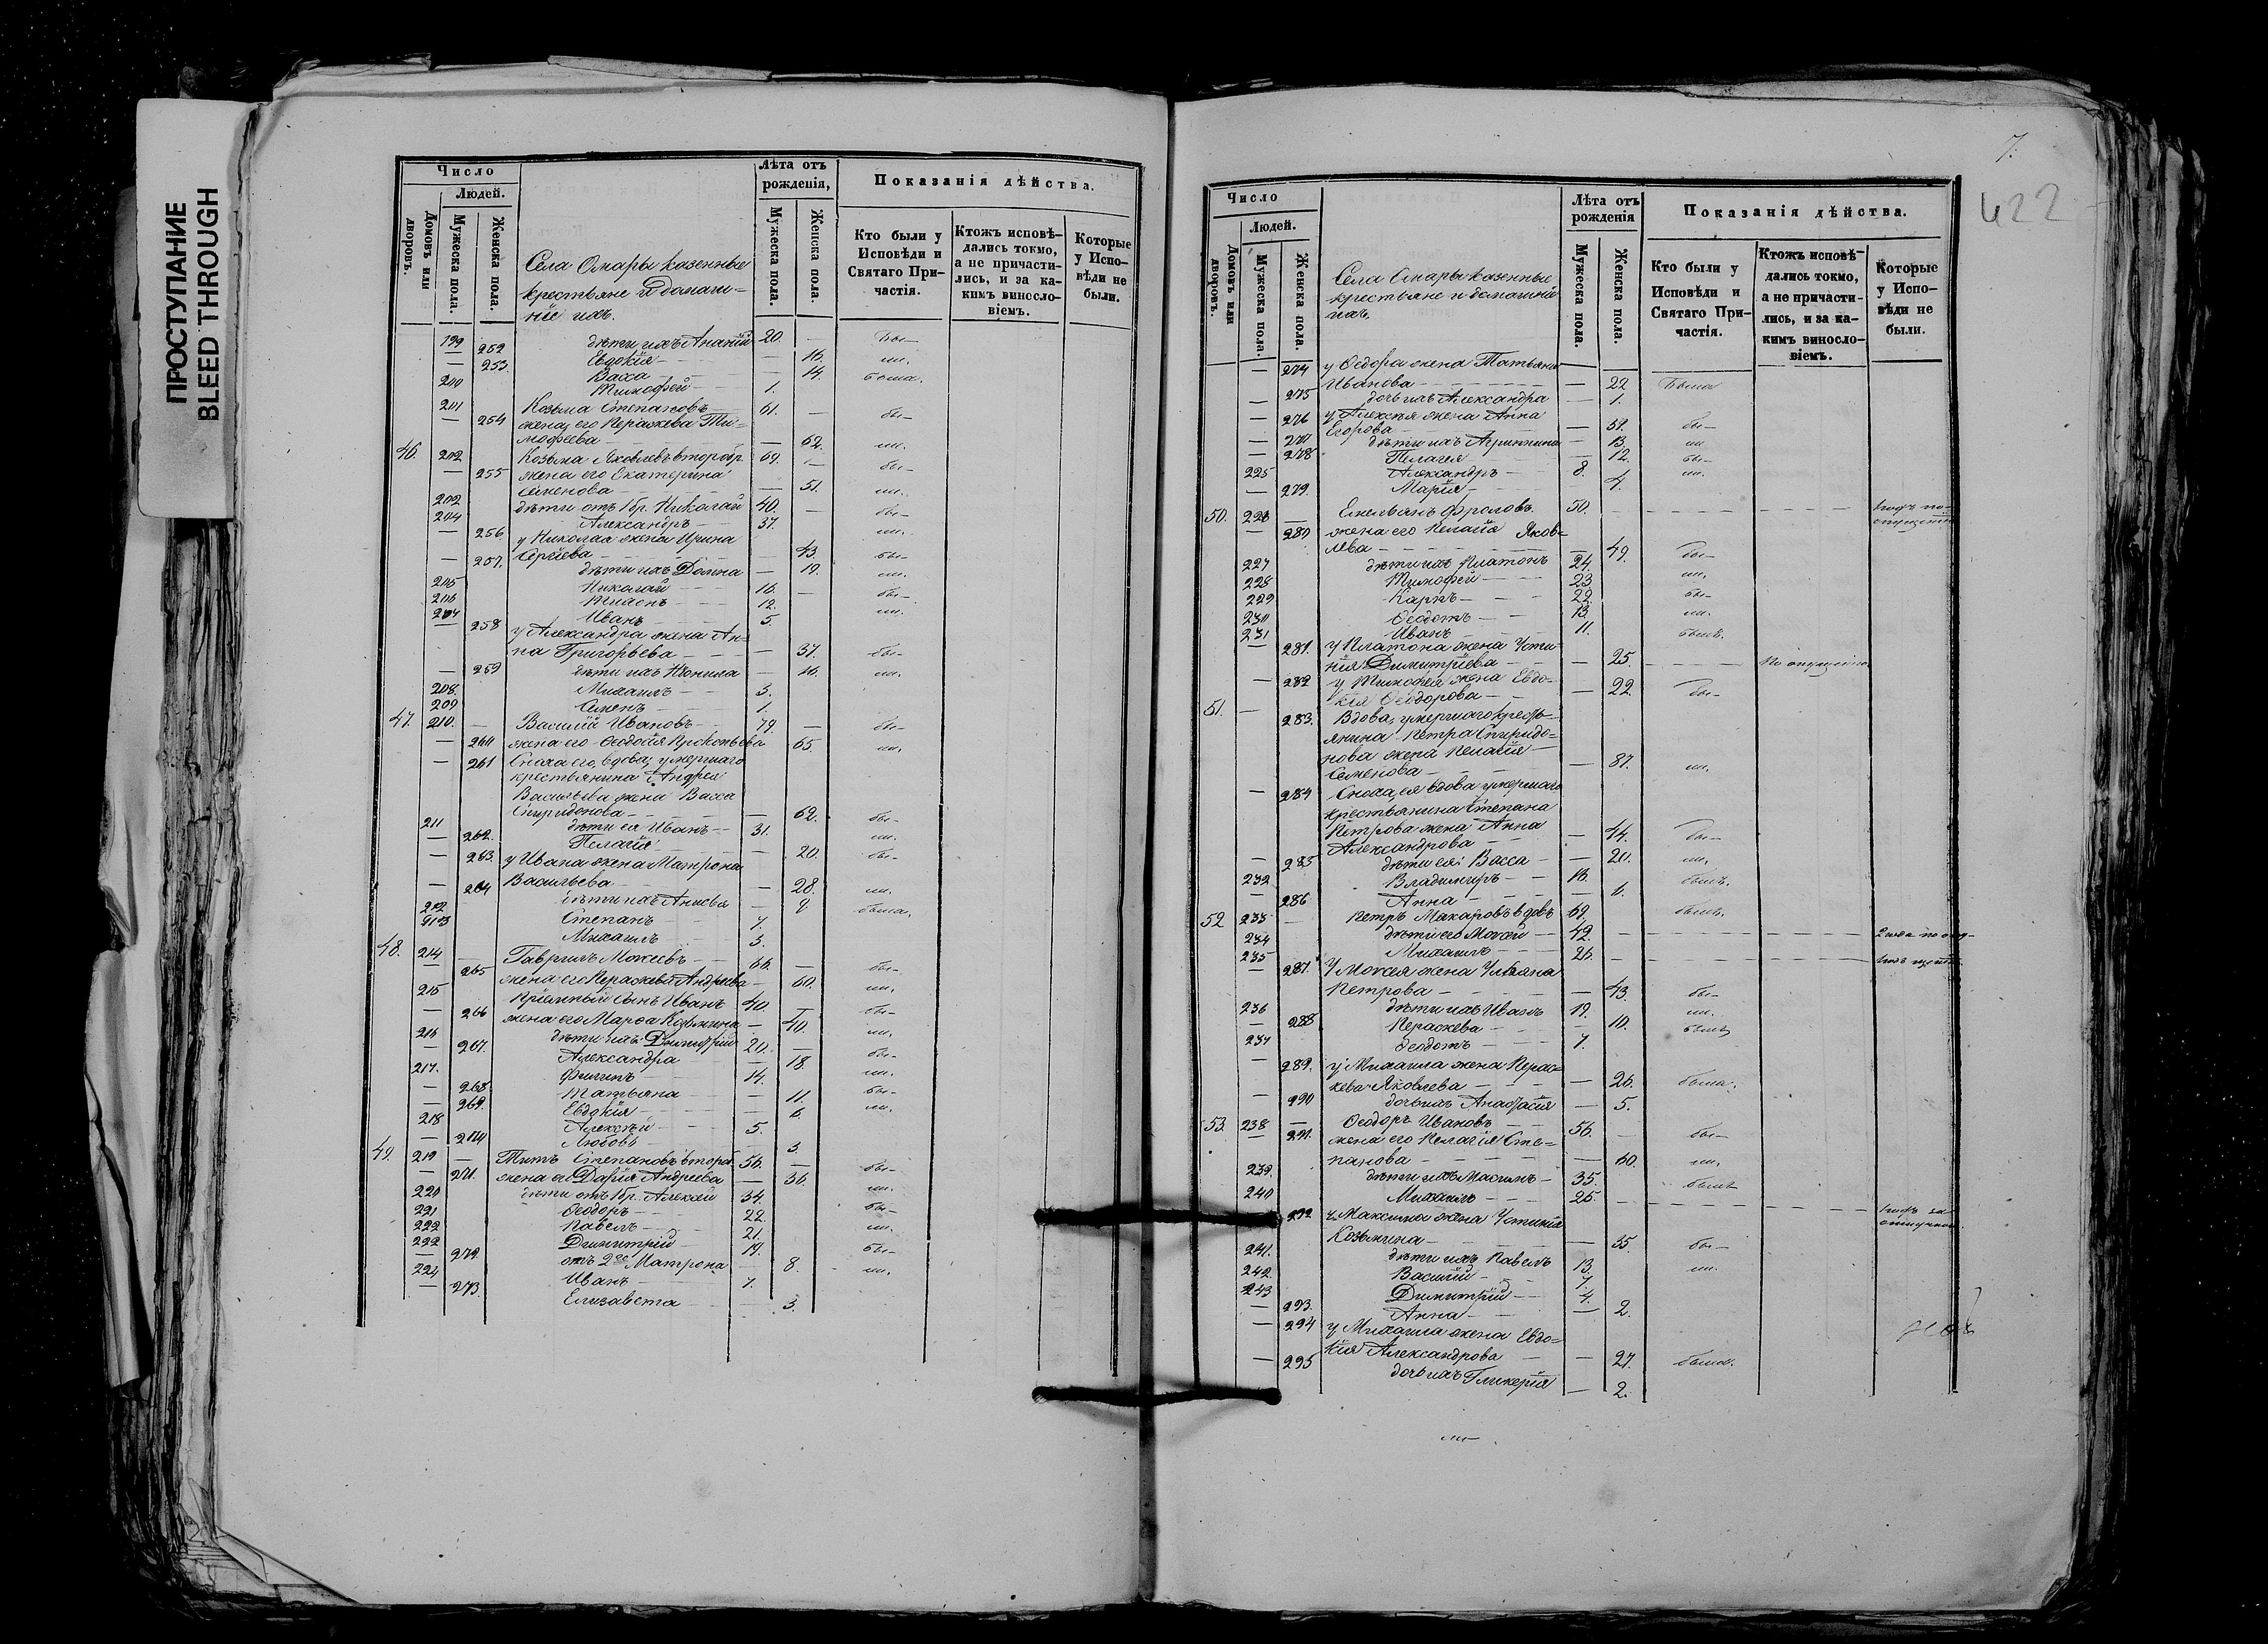 ПРОСТУПАНИЕ
BLEED THROUGH
Число
Людей.
Домовъ или дворовъ.
Мужеска пола.
Женска пола.
Села Омары казенные
крестьяне и домаш-
ніе ихъ.
Лѣта отъ рожденія,
Мужеска пола.
Женска пола.
Показанія дѣйства.
Кто были у Исповѣди и Святаго При-частія.
Ктожъ исповѣ-дались токмо, а не причасти-лись, и за ка-кимъ виносло-віемъ.
Которые у Испо-вѣди не были.
199 дѣти ихъ Ананій 20. бы-
252 Евдокія 16. ли.
253. Васса 14. была.
200 Тимофей 1.
201 Козьма Степановъ 61. бы-
254 жена его Параскева Ти-
мофеева 62. ли.
46. 202 Козьма Яковлевъ второбр. 69. бы-
255 жена его Екатерина
Семенова 51. ли.
дѣти отъ 1 бр. Николай 40. бы-
204 Александръ 37. ли.
256 у Николая жена Ирина
Сергѣева 43. бы-
257. дѣти ихъ Домна 19. ли.
205 Николай 16. бы-
206 12. ли.
Иванъ 5.
258 у Александра жена Ан-
на Григорьева 37. бы-
259 дѣти ихъ 16. ли.
208. Михаилъ 3.
209 Семенъ 1.
47. 210. Василій Ивановъ 79. бы-
260 жена его Феодосія Прокопьева 65. ли.
261 Сноха его, вдова умершаго
крестьянина Андрея
Васильева жена Васса
Спиридонова 62. бы-
211 дѣти ея Иванъ 31. ли.
262. Пелагія 20. бы-
263. у Ивана жена Матрона
Васильева 28. ли.
264 дѣти ихъ была.
212 Степанъ 7.
213 Михаилъ 3.
48. 214 Гаврилъ Мокеевъ 66. бы-
265 жена его Параскева Андреева 60. ли.
215 Пріемный сынъ Иванъ 40. бы-
266 жена его Марфа Козьмина 40. ли.
216 дѣти ихъ Димитрій 20. бы-
267. Александра 18. ли.
217. Филипъ 14. бы-
268. Татьяна 11. ли.
269. Евдокія 6
218 Алексѣй 5.
270 Любовь 3.
49. 219 Титъ Степановъ второб. 56. бы-
271. жена его Дарія Андреева 36. ли.
220 дѣти отъ 1 бр. Алексѣй 34 бы-
221 Феодоръ 22. ли.
222 Павелъ 21. бы-
Димитрій 19. ли.
272. отъ 2го Матрона 8.
224 Иванъ 7.
273. Елизавета 3.
7.
422
Число
Людей.
Домовъ или дворовъ.
Мужеска пола.
Женска пола.
Села Омары казенные
крестьяне и домашніе
ихъ.
Лѣта отъ рожденія
Мужеска пола.
Женска пола.
Показанія дѣйства.
Кто были у Исповѣди и Святаго При-частія.
Ктожъ исповѣ-дались токмо, а не причасти-лись, и за ка-кимъ виносло-віемъ.
Которые у Испо-вѣди не были.
274 у Феодора жена Татьяна
Иванова 22 была
275 дочь ихъ Александра 1.
276 у Алексѣя жена Анна
Егорова бы-
277 дѣти ихъ Агриппина 13. ли
278 Пелагея 12. бы-
225 Александръ 8. ли.
279. Марія 4.
50. 226 Емельянъ Фроловъ 50.
280 жена его Пелагія Яков-
лева 49. бы-
227 дѣти ихъ Платонъ 24. ли.
228 Тимофей 23 бы-
229 Карпъ 22. ли.
230 Феодотъ 13.
231 Иванъ 11.
281. у Платона жена Усти-
нія Димитріева 25. По опущенію
282 у Тимофея жена Евдо-
кія Феодорова 22 бы-
51. 283. Вдова умершаго кресть-
янина Петра Спиридо-
нова жена Пелагія
Семенова 87. ли.
284 Сноха, ея вдова умершаго
крестьянина Степана
Петрова жена Анна
Александрова 44. бы-
285 дѣти ея: Васса 20. ли.
232 Владимиръ
286 Анна 6.
52 233 Петръ Макаровъ вдовъ 69.
234 дѣти его Мокей 42.
235 Михаилъ 26.
287. У Мокея жена Ульяна
Петрова 43. бы-
236 дѣти ихъ Иванъ 19. ли.
288 Параскева 10.
237 Феодотъ 7.
289. у Михаила жена Парас-
кева Яковлева 26. была.
290 дочь ихъ Анастасія 5.
53. 238 Феодоръ Ивановъ 56. бы-
291. жена его Пелагія Сте-
панова 60. ли.
239. дѣти ихъ Максимъ 35.
240 Михаилъ 25
292 у Максима жена Устинія
Козьмина 35. бы-
241. дѣти ихъ Павелъ 13. ли.
242. Василій 7.
243 Димитрій 4.
293. Анна 2.
294 у Михаила жена Евдо-
кія Александрова 27. была.
295 дочь ихъ Гликерія 2.